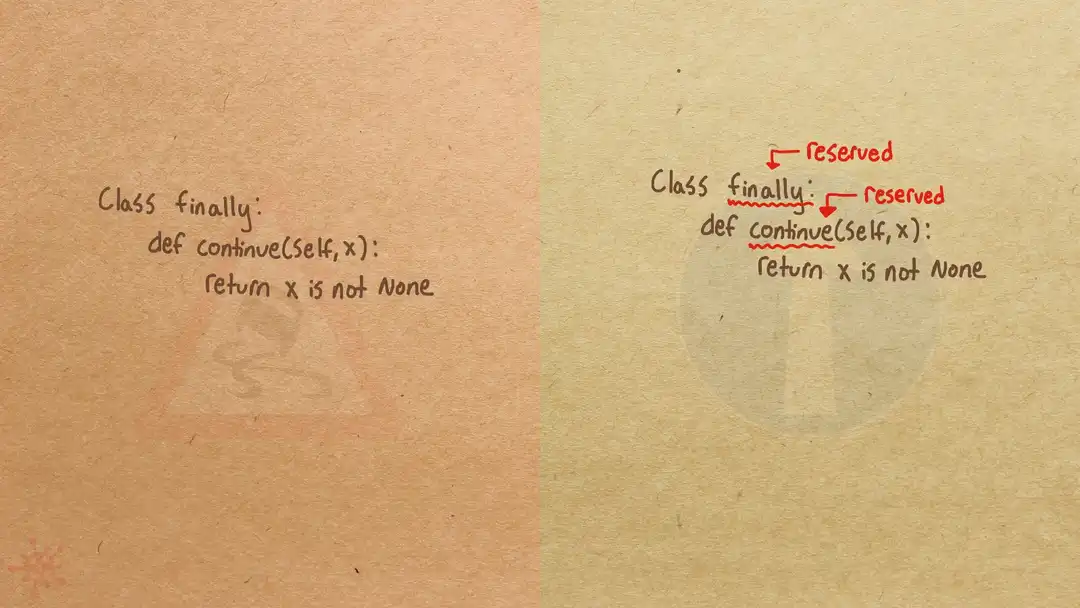 Class finally:
def continue(self, x):
return x is not None
reserved
Class finally:
reserved
def continue(self, x):
return x is not None